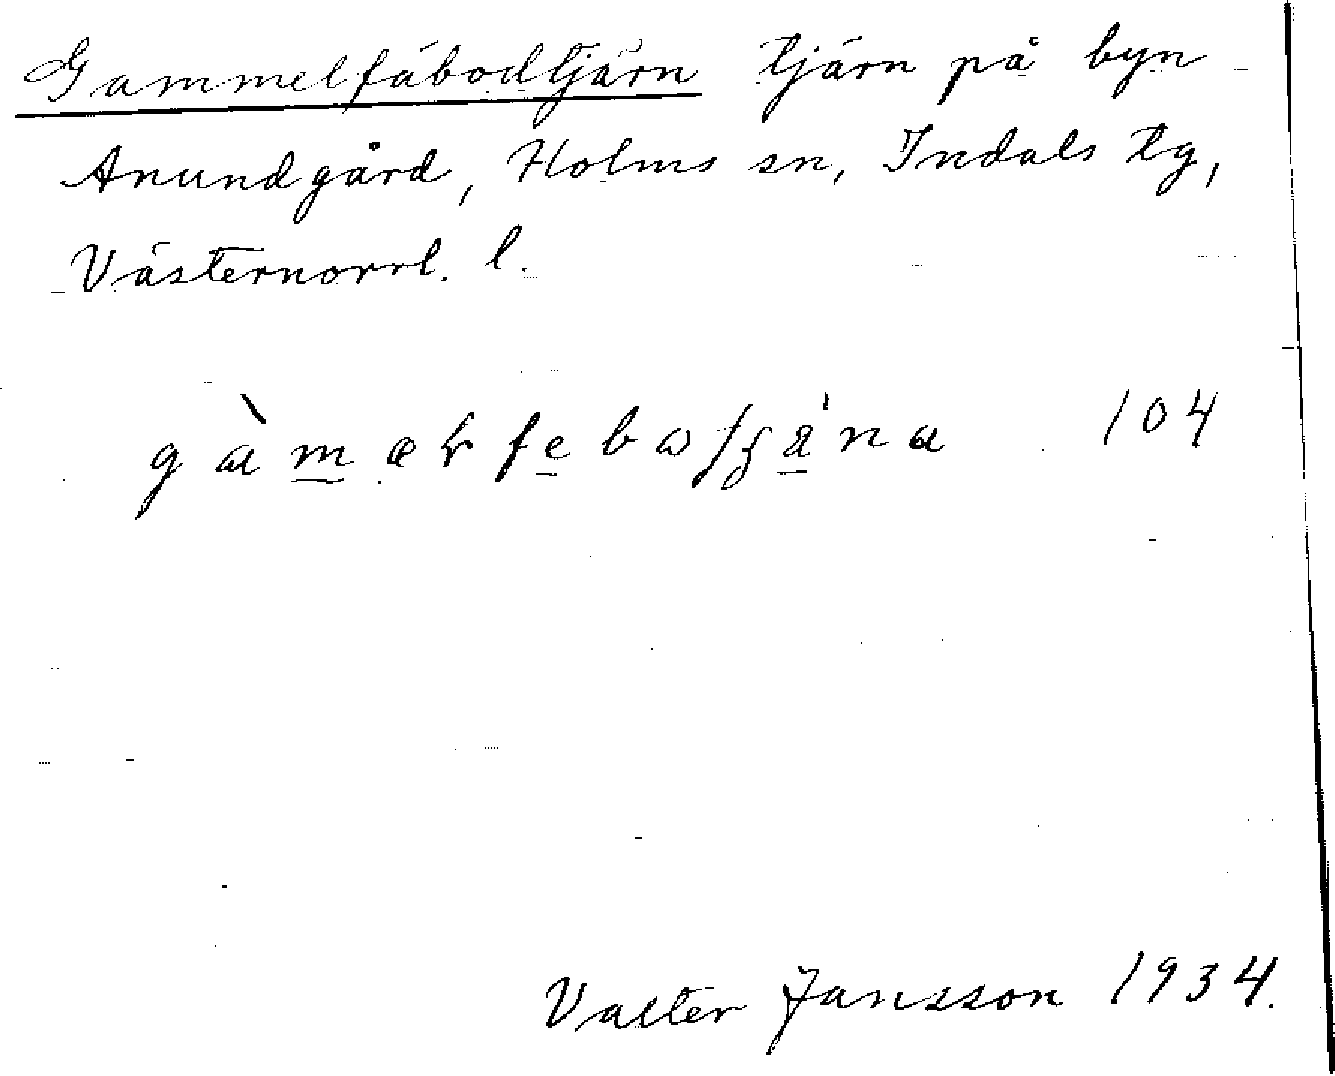 Gammelfäbodtjärn tjärn på byn
Anundgård, Holms sn, Indals tg,
Västernorrl. l.
104
Valter Jansson 1934.